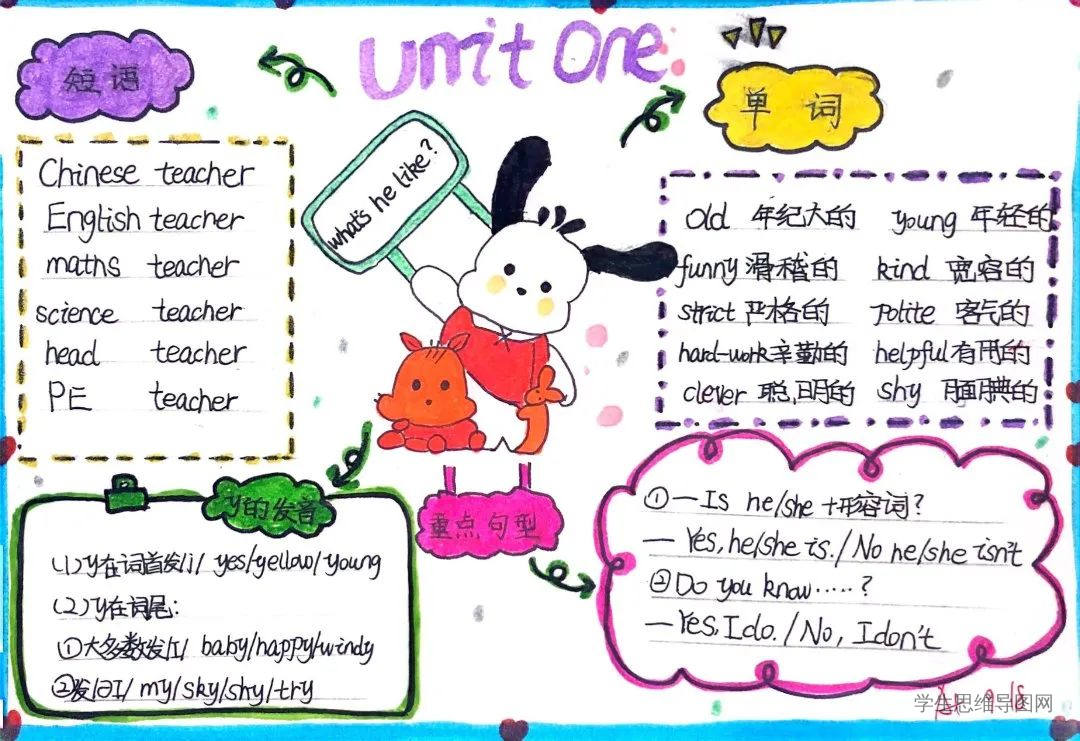 Unit One
短语
Chinese teacher
English teacher
maths teacher
science teacher
head teacher
PE teacher
what's he like?
单词
old 年纪大的 young 年轻的
funny 滑稽的 kind 宽容的
strict 严格的 polite 客气的
hard-work 辛勤的 helpful 有用的
clever 聪明的 shy 腼腆的
y的发音
(1) y在词首发/j/ yes/yellow/young
(2) y在词尾:
①大多数发/I/ baby/happy/windy
②发/aI/ my/sky/shy/try
重点句型
① — Is he/she +形容词?
— Yes, he/she is. / No he/she isn't
② Do you know.....?
— Yes, I do. / No, I don't
学生思维导图网